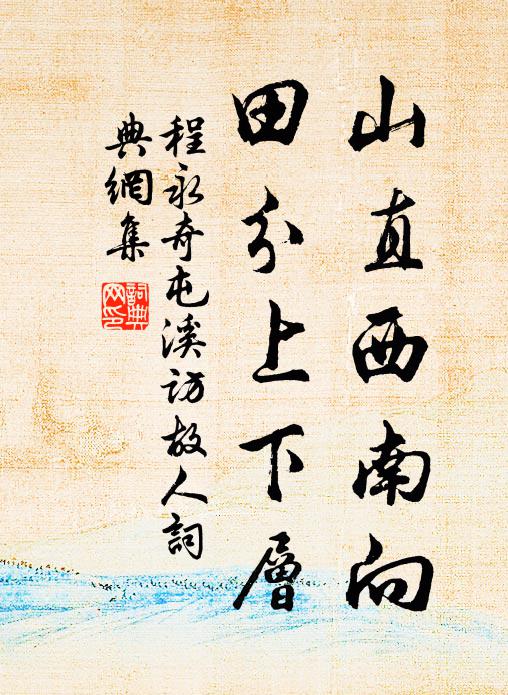 山直西南向
田分上下層
程永奇屯溪訪故人詞
典網集
詞典
网印